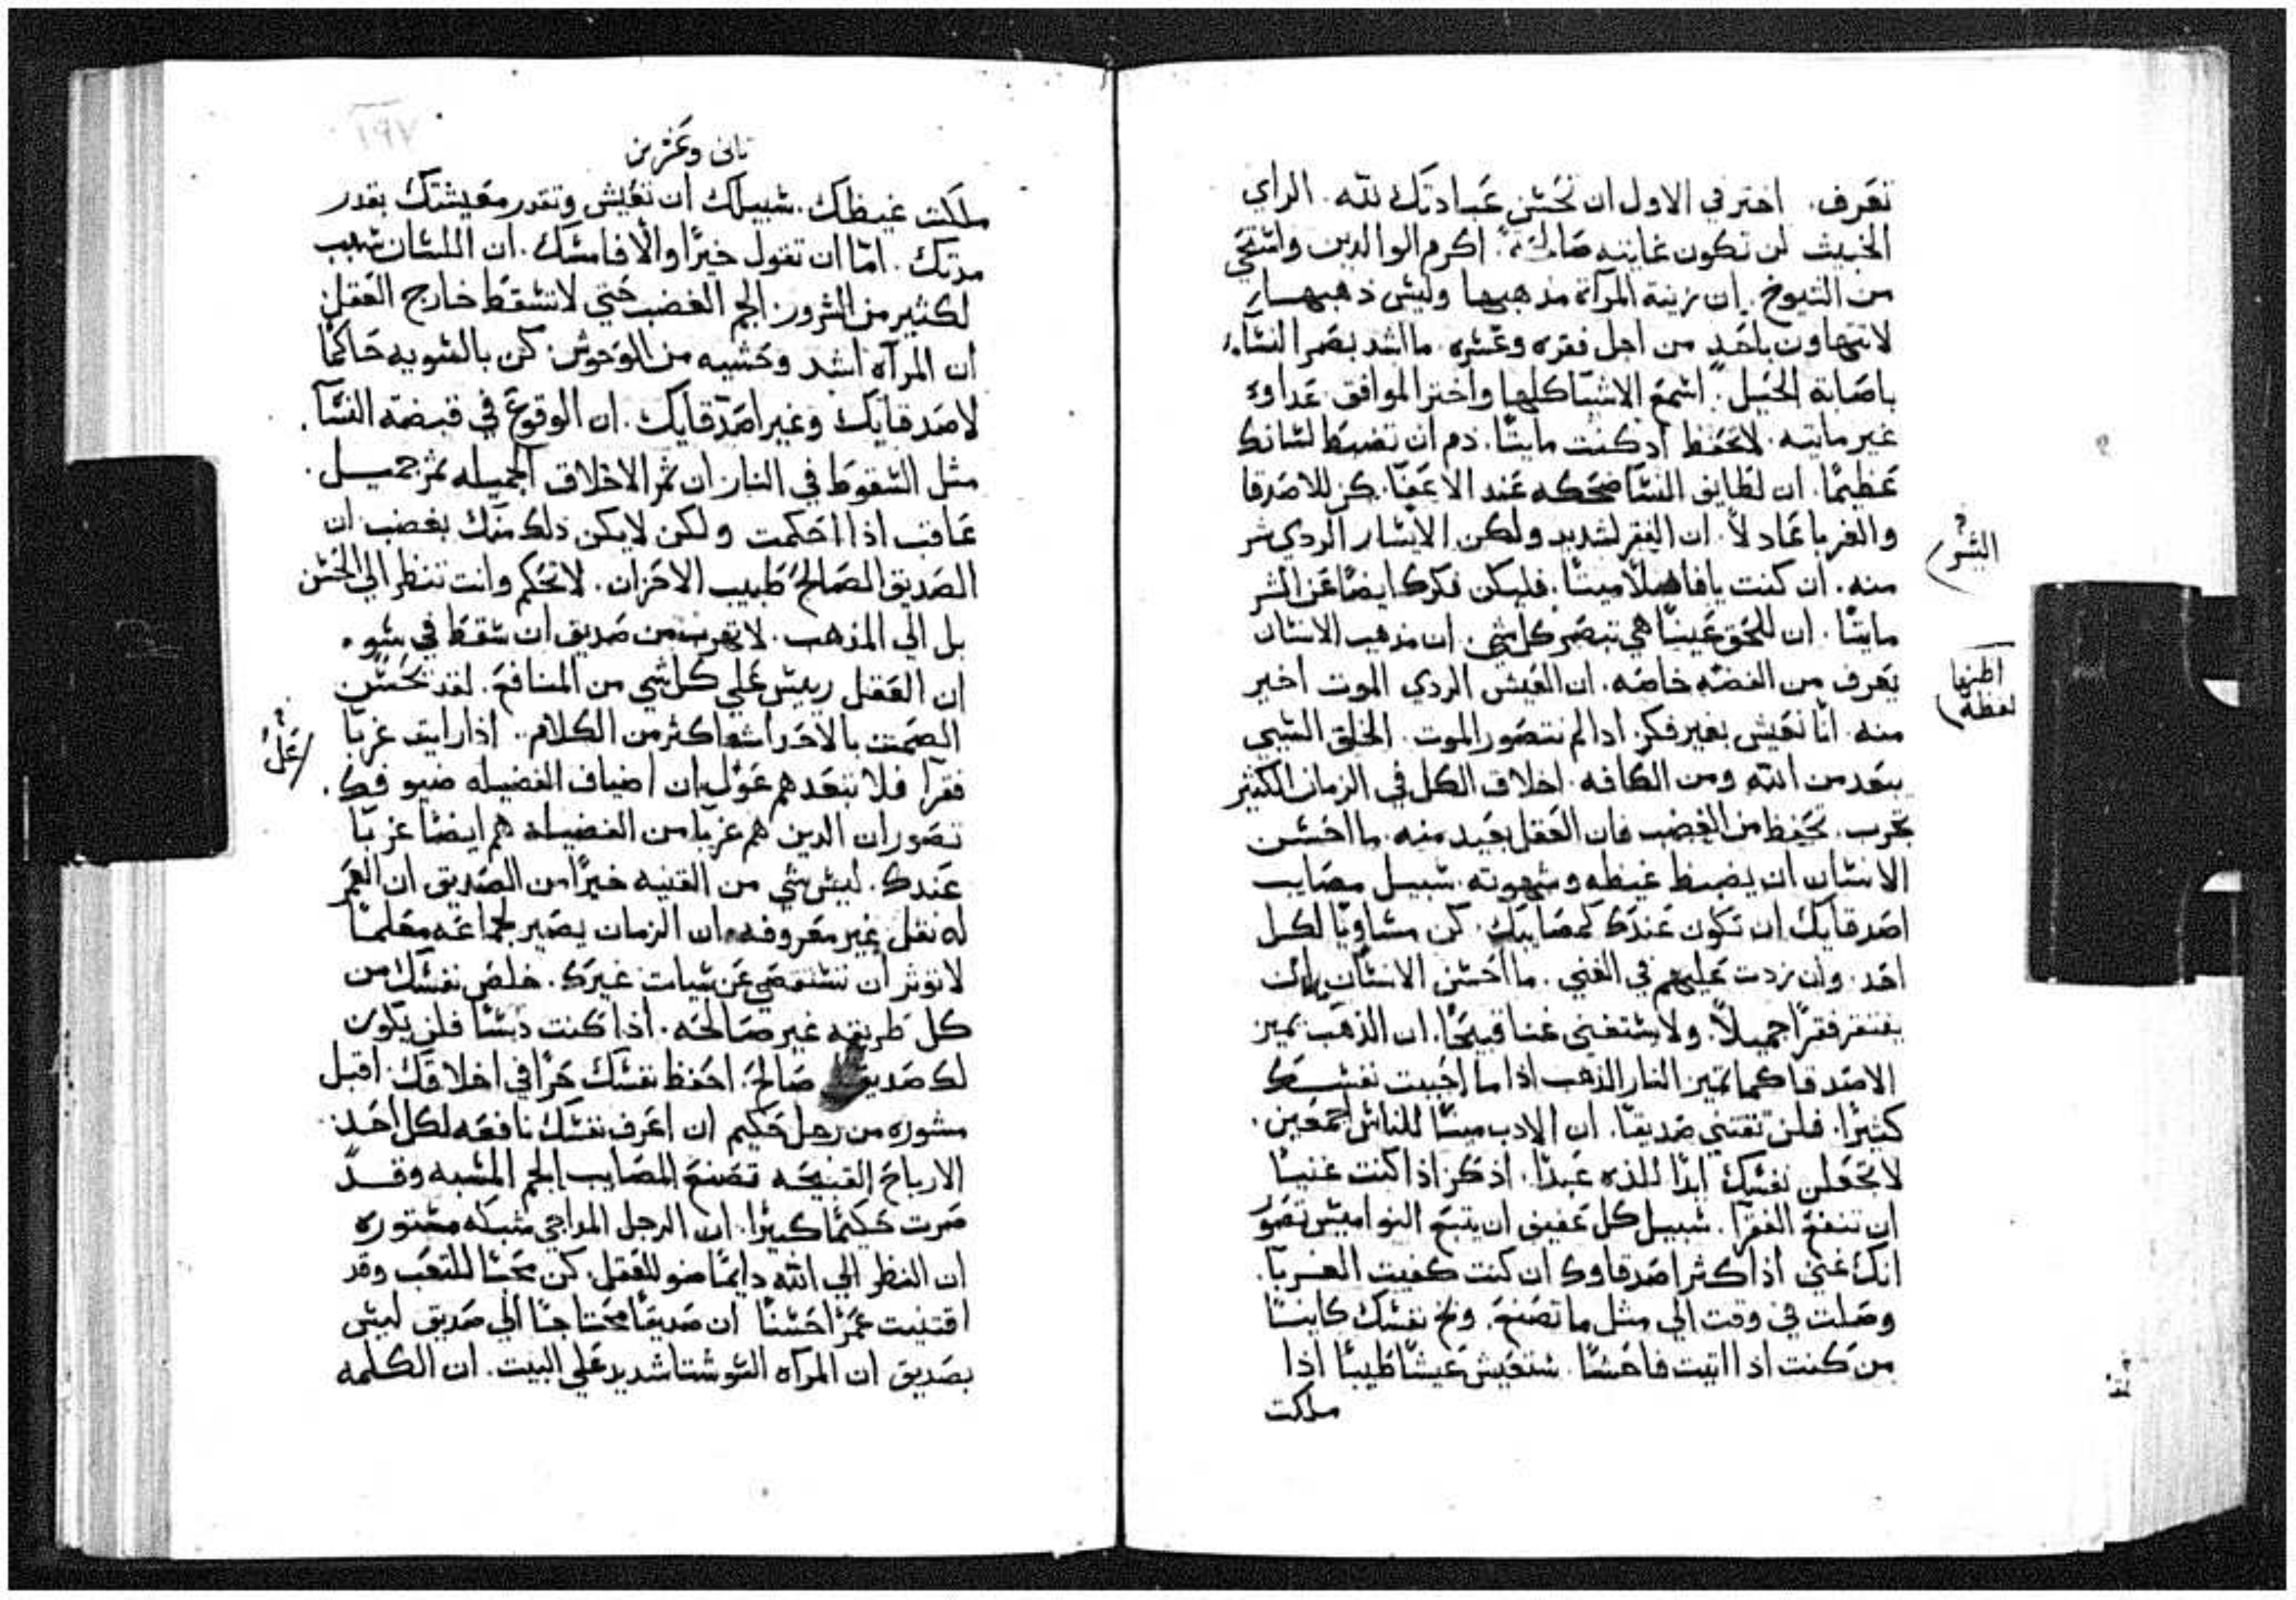 تعرف. اختر في الاول ان تحسن عبادتك لله. الراي
الخبيث لن تكون غايته صالحة. اكرم الوالدين واستحي
من الشيوخ. ان زينة المرآة مذهبها وليس ذهبها
لا تتهاون باحد من اجل فقره وعسره. ما اشد بصر النسآ
باصابة الحيل. اسمع الاشيا كلها واختر الموافق. عداوه
غير مايته. لا تحفظ اذ كنت مايتا. دم ان تضبط لسانك
عظيما. ان لطايف النسا ضحكه عند الاعفا. كن للاصدقا
والغربا عادلا. ان الفقر لشديد ولكن الايسار الردي شر
منه. ان كنت يا فاضلا ميتا. فليكن فكرك ايضا عن الشر
مايتا. ان للحق عينا هي تبصر كل شي. ان مذهب الانسان
يعرف من الفضه خاصه. ان العيش الردي الموت اخير
منه. انا نعيش بغير فكر. اذا لم نتصور الموت. الخلق السيي
يبعد من الله ومن الكافه. اخلاق الكل في الزمان الكثير
تجرب. تحفظ من الغضب فان العقل بعيد منه. ما احسن
الانسان ان يضبط غيظه وشهوته. سبيل مصايب
اصدقايك ان تكون عندك كمصايبك. كن مساويا لكل
احد. وان زدت عليهم في الغني. ما احسن الانسان
يفتقر فقرا جميلا. ولا يستغني غنا قبيحا. ان الذهب يميز
الاصدقا كما تميز النار الذهب اذا ما احببت نفسك
كثيرا. فلن تقتني صديقا. ان الادب مينا للناس اجمعين.
لا تجعلن نفسك ابدا للذه عبدا. اذكر اذا كنت غنيا
ان تنفع الفقرا. سبيل كل عفيف ان يتبع النواميس تصور
انك غني اذا كثر اصدقاوك ان كنت كفيت الغربا.
وصلت في وقت الي مثل ما تصنع. وبخ نفسك كاينا
من كنت اذا اتيت فاحشا. ستعيش عيشا طيبا اذا
ملكت
الشو
اظنها
لفظه
ثاني وعشرين
١٩٧
ملكت غيظك. سبيلك ان تعيش وتقدر معيشتك بقدر
مدتك. اما ان تقول خيرا والا فامسك. ان اللسان سبب
لكثير من الشرور. الجم الغضب حتي لا تسقط خارج العقل
ان المرآه اشد وحشيه من الوحوش. كن بالسويه حاكما
لاصدقايك وغير اصدقايك. ان الوقوع في قبضة النسآ.
مثل السقوط في النار. ان ثمر الاخلاق الجميله ثمر جميل.
عاقب اذا احكمت ولكن لا يكن ذلك منك بغضب ان
الصديق الصالح طبيب الاحزان. لا تحكم وانت تنظر الي الحسن
بل الي المذهب. لا تهرب من صديق ان سقط في سوء
ان العقل رييس علي كل شي من المنافع. لقد تحسن
الصمت بالاحداث اكثر من الكلام. اذا رايت غربا
فقرآ فلا تبعدهم عول ان اضياف الفضيله ضيوفك.
تصور ان الدين هم غربا من الفضيلة هم ايضا غربا
عندك. ليس شي من القنيه خيرا من الصديق ان العمر
له نقل غير معروفه. ان الزمان يصير لجماعه معلما
لا توثر ان تستقصي عن سيات غيرك. خلص نفسك من
كل طريقه غير صالحه. اذا كنت دبسا فلن يكون
لك صديق صالح. احفظ نفسك حرا في اخلاقك. اقبل
مشوره من رجل حكيم ان اعرف نفسك نافعه لكل احد.
الارباح القبيحه تصنع المصايب الجم المشبه وقد
صرت حكيما كبيرا. ان الرجل المداجي شبكه مستوره
ان النظر الي الله دايما ضو للعقل. كن محبا للتعب وقد
اقتنيت عمرا حسنا ان صديقا محتاجا الي صديق ليس
بصديق ان المرآه السو شتا شديد علي البيت. ان الكلمه
عل